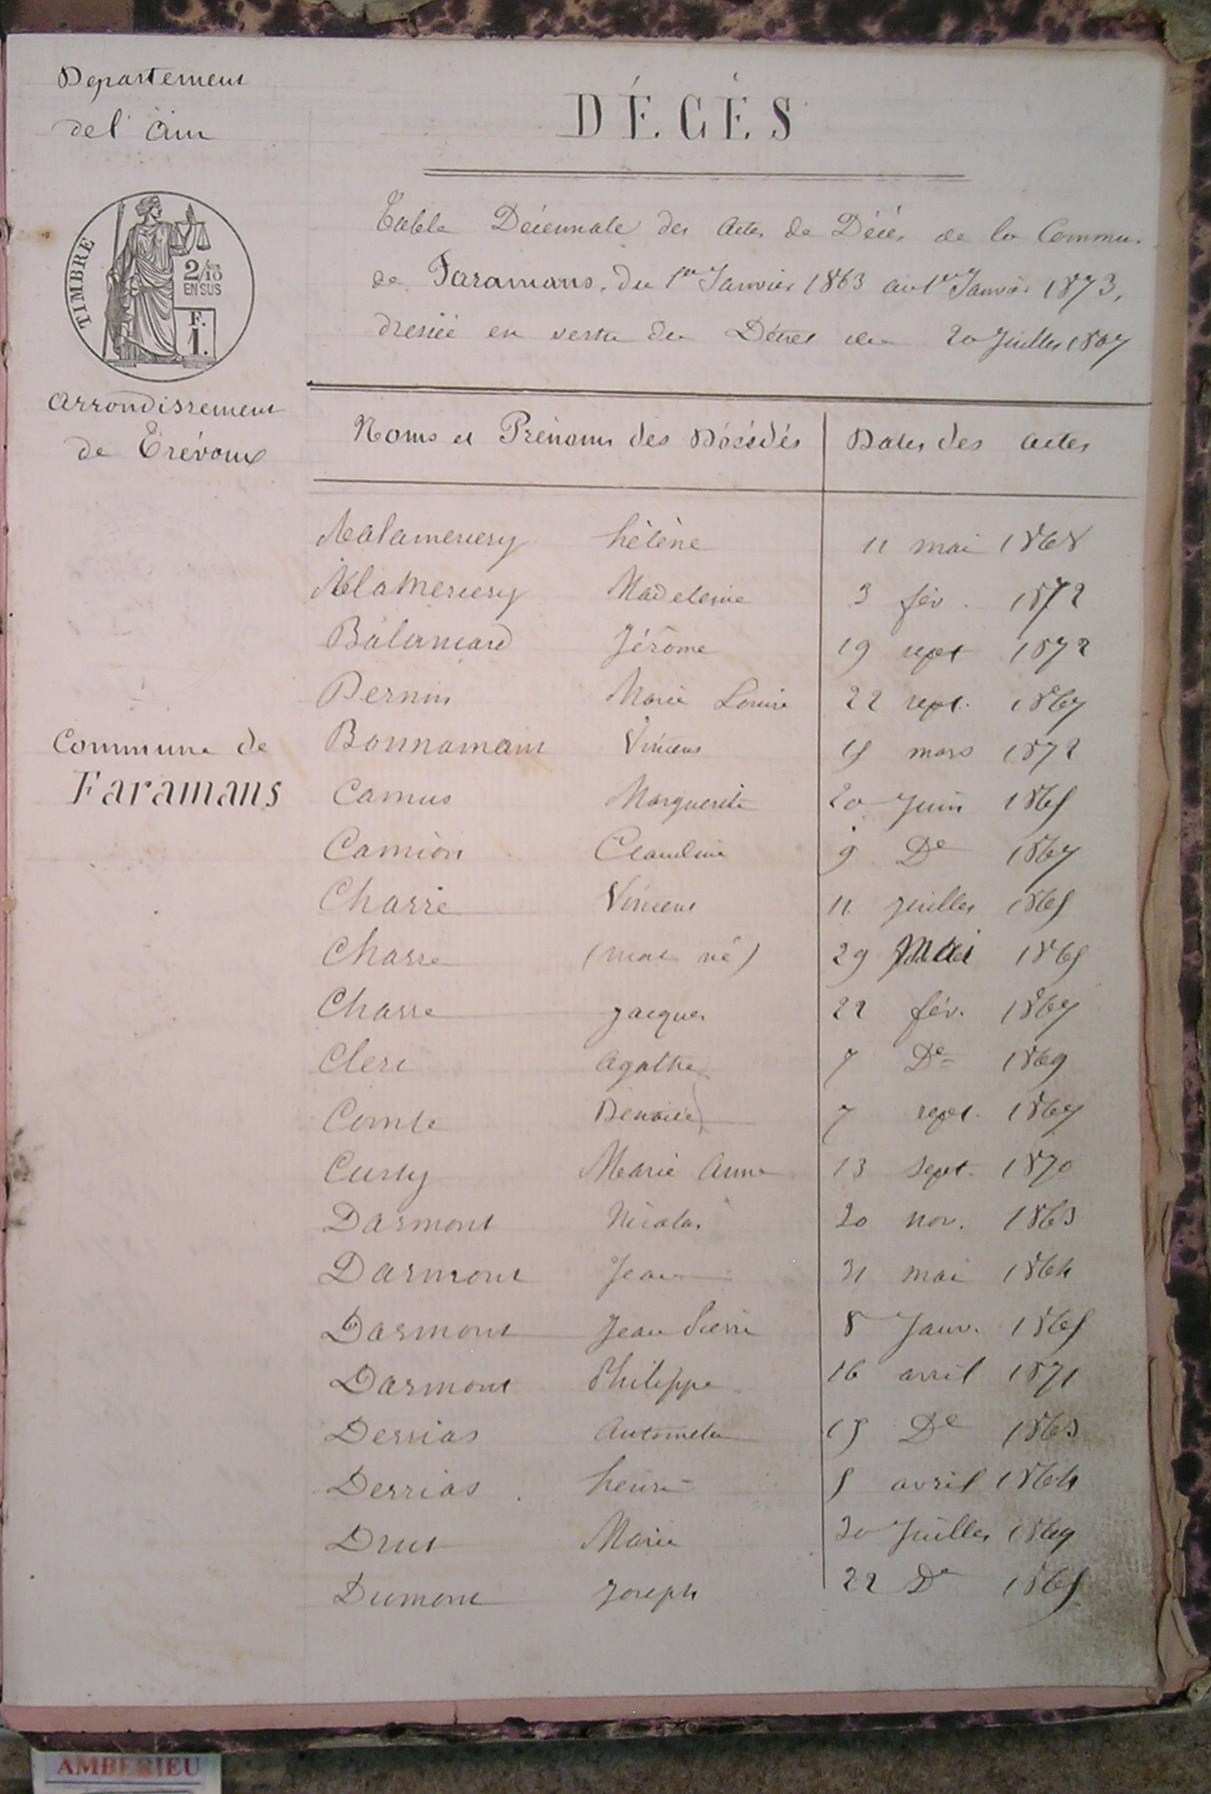 Departement
de l'Ain
TIMBRE
2/10
EN SUS
F.
1.
Arrondissement
de Trévoux
Commune de
Faramans
DÉCÈS
Table Décennale des Actes de Décès de la Commune
de Faramans, du 1er Janvier 1863 au 1er Janvier 1873,
dressée en vertu du Décret du 20 Juillet 1807
Noms et Prénoms des Décédés Dates des Actes
hélène 11 mai 1868
Madeleine 3 fév. 1872
Jérôme 19 sept 1872
Marie Louise 22 sept. 1867
Bonnamain Vincent 15 mars 1872
Camus Marguerite 20 Juin 1865
Camion Claudine 9 De 1867
Charre Vincent 11 juillet 1865
Charre (mort né) 29 Mai 1865
Charre Jacques 22 fév. 1867
Clerc Agathe 7 De 1869
Comte Benoite 7 sept. 1867
Curty Marie Anne 13 sept. 1870
Darmont Nicolas 20 nov. 1863
Darmont Jean 31 mai 1864
Darmont Jean Pierre 8 Janv. 1865
Darmont Philippe 16 avril 1871
Derrias Antoinette 15 De 1863
Derrias henri 5 avril 1864
Drut Marie 30 Juillet 1869
Dumont Joseph 22 De 1865
AMBERIEU